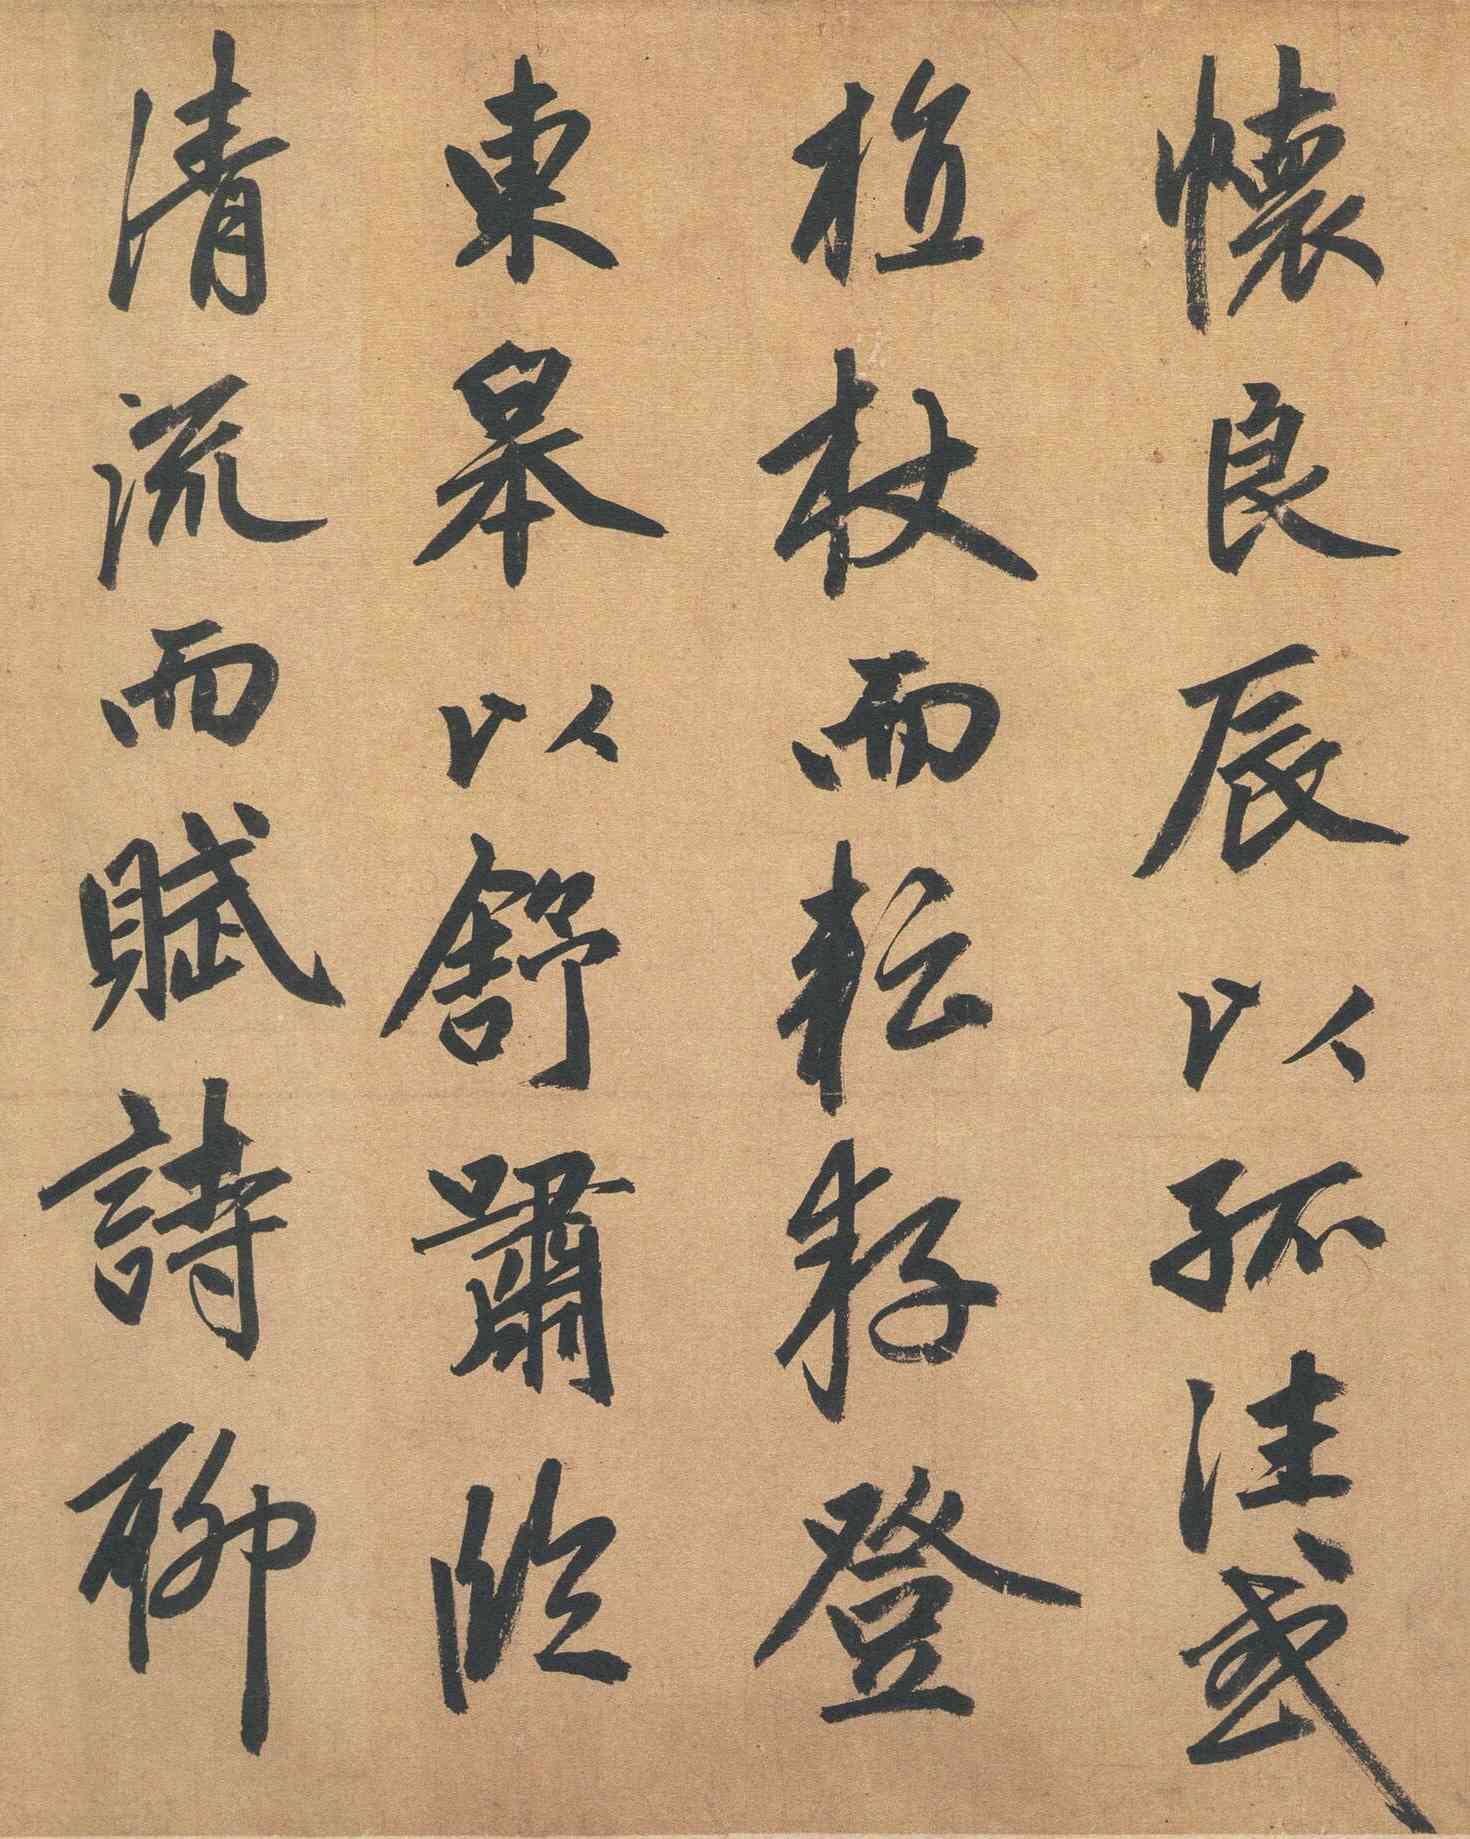 懷良辰以孤往或
植杖而耘耔登
東皋以舒嘯臨
清流而賦詩聊